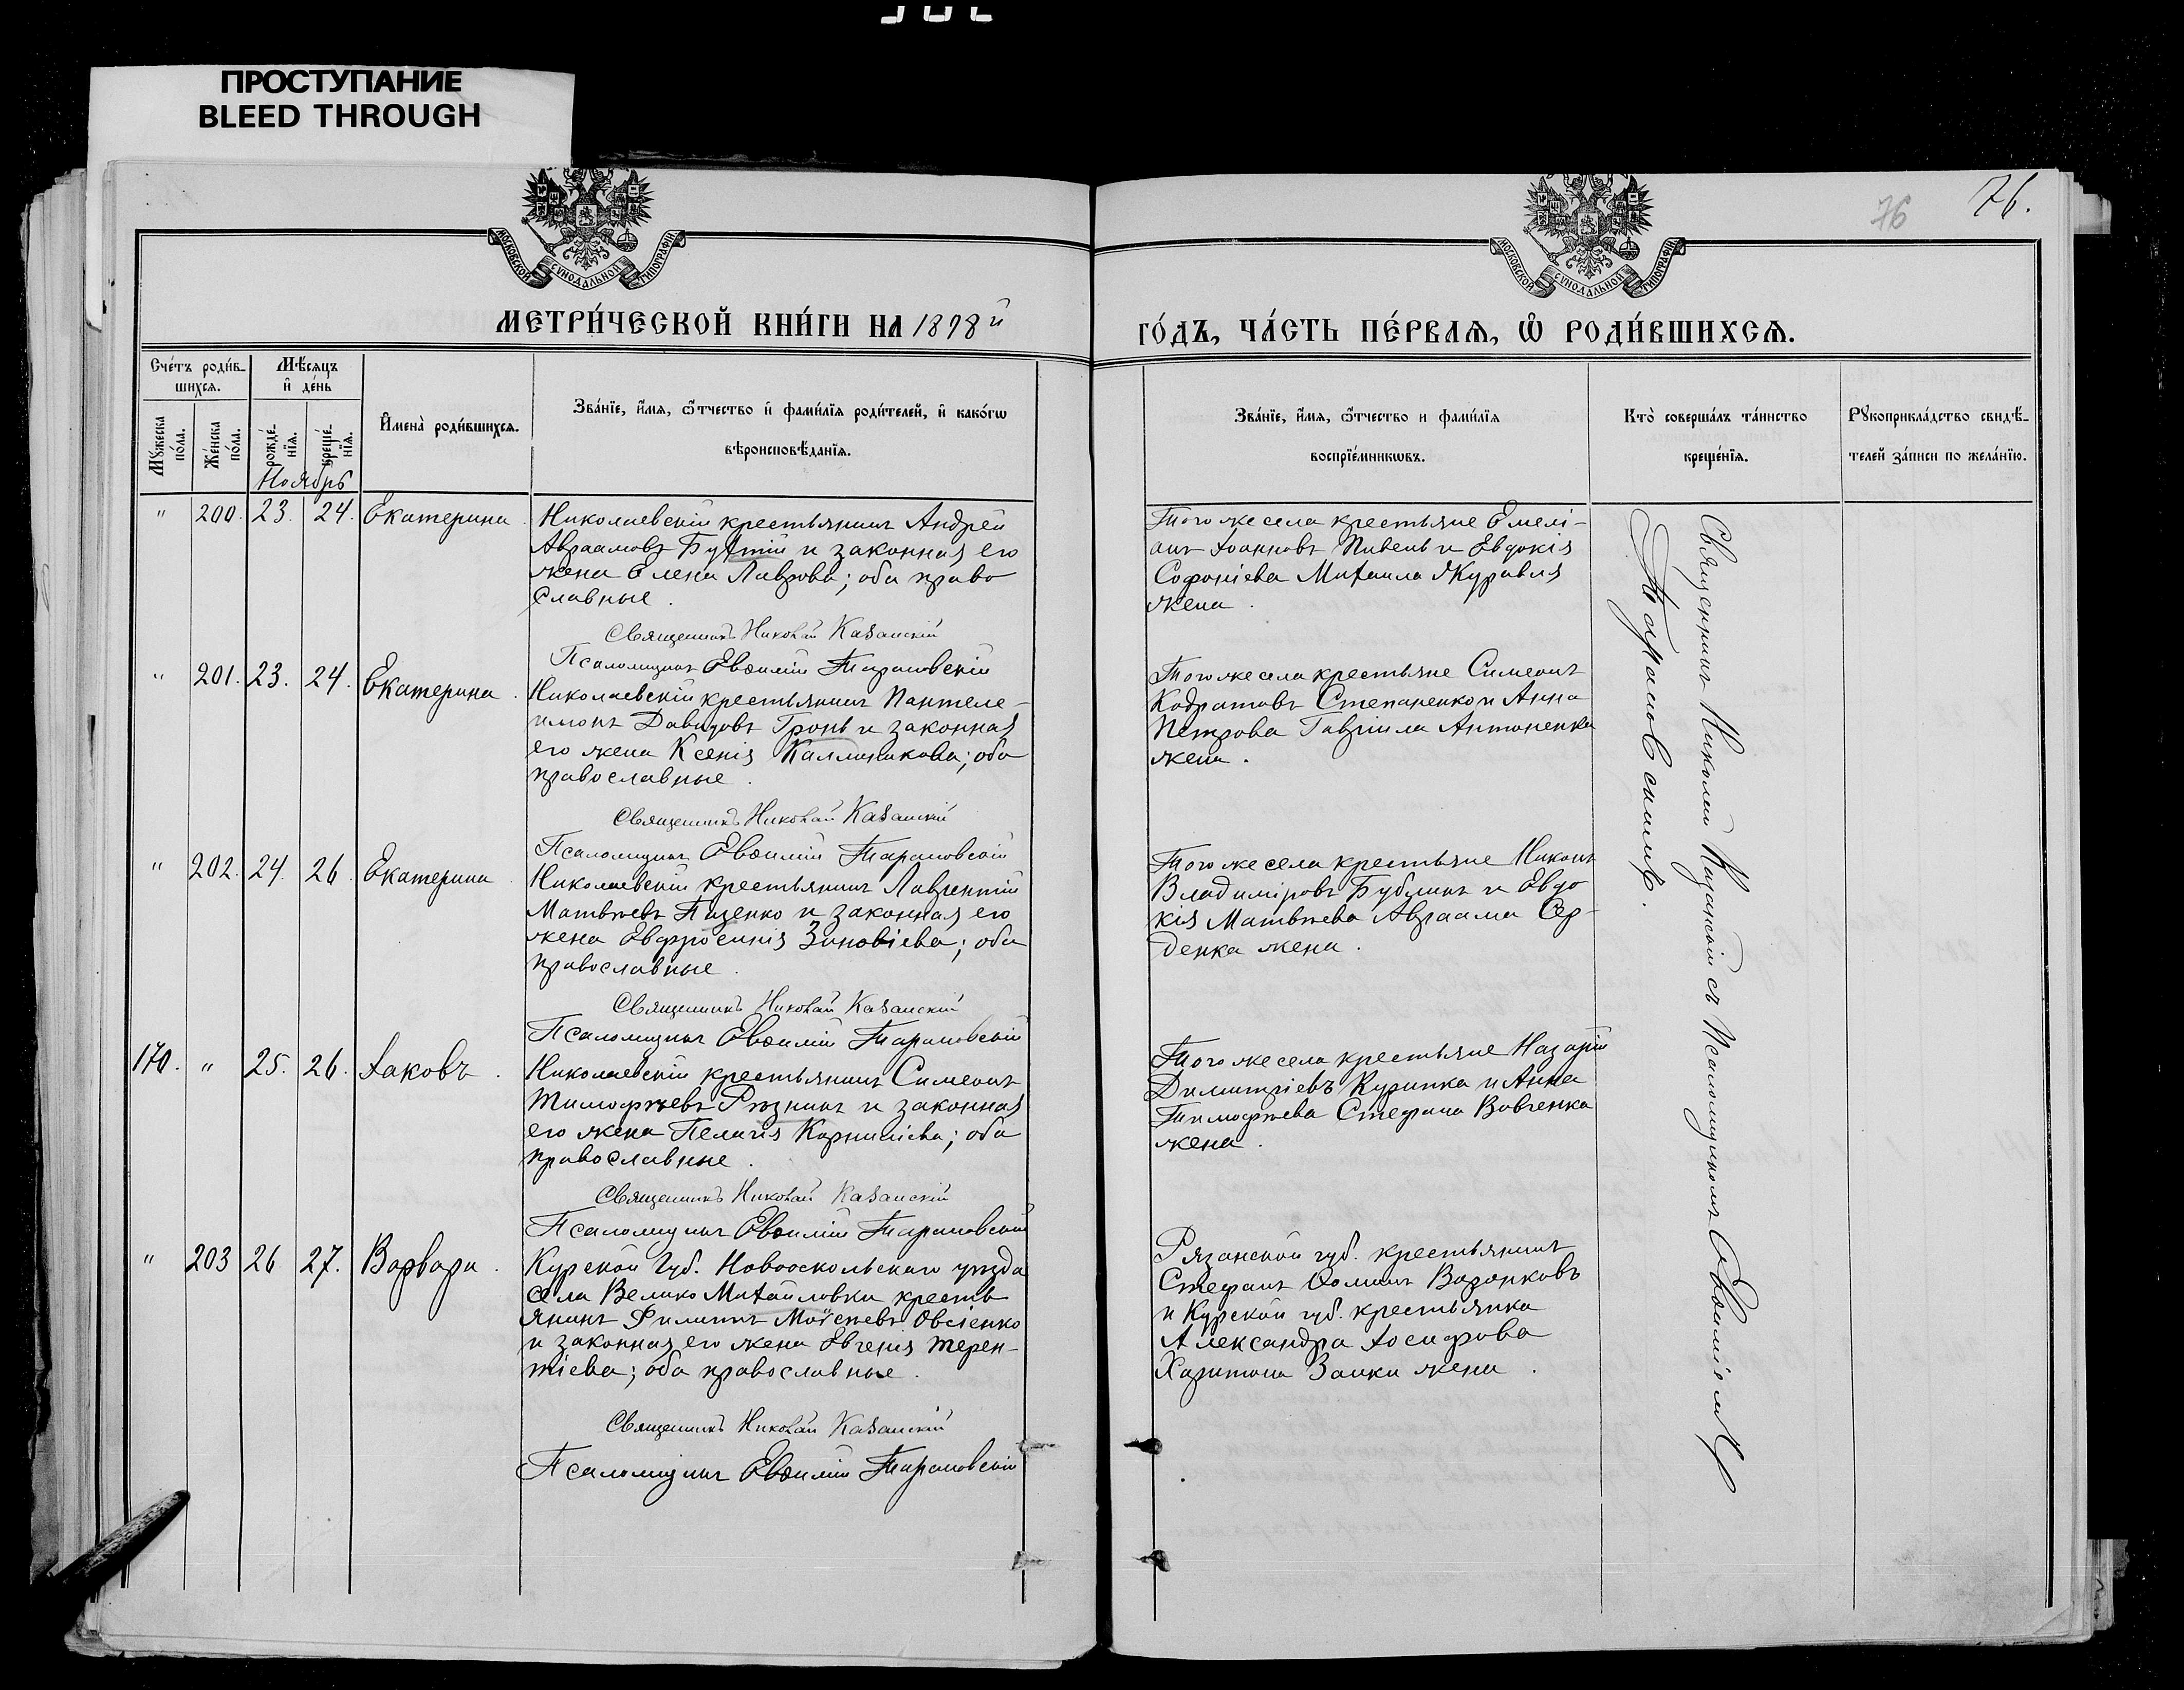 ПРОСТУПАНИЕ
BLEED THROUGH
76
76.
МОСКОВСКОЙ СѴНОДАЛЬНОЙ ТИПОГРАФІИ
МОСКОВСКОЙ СѴНОДАЛЬНОЙ ТИПОГРАФІИ
МЕТРИ́ЧЕСКОЙ КНИ́ГИ НА 1898й
ГО́ДЪ, ЧА́СТЬ ПЕ́РВАѦ, Ѽ РОДИ́ВШИХСѦ.
Сче́тъ роди́в-
шихсѧ.
Мѣ́сѧцъ
и҆ де́нь
Мꙋ́жеска
по́ла.
Же́нска
по́ла.
рожде́-
нїѧ.
креще́-
нїѧ.
И҆мена̀ роди́вшихсѧ.
Зва́нїе, и҆́мѧ, ѻ҆́тчество и҆ фами́лїѧ роди́телей, и҆ како́гѡ
вѣроисповѣ́данїѧ.
Зва́нїе, и҆́мѧ, ѻ҆́тчество и фами́лїѧ
воспрїе́мникѡвъ.
Кто̀ соверша́лъ та́инство
креще́нїѧ.
Рꙋкоприкла́дство свидѣ́-
телей за́писи по жела́нїю.
Ноябрь
" 200. 23. 24. Екатерина.
Николаевскій крестьянинъ Андрей
Авраамовъ и законная его
жена Елена Лаврова; оба право
славные.
Священникъ Николай Казанскій
Псаломщикъ Евѳимій Тарановскій
Того же села крестьяне Емелі-
анъ Іоанновъ Пивень и Евдокія
Софоніева Михаила Журавля
жена.
" 201. 23. 24. Екатерина.
Николаевскій крестьянинъ Пантеле-
имонъ Давидовъ Гронь и законная
его жена Ксенія Каллиникова; оба
православные.
Священникъ Николай Казанскій
Псаломщикъ Евѳимій Тарановскій
Того же села крестьяне Симеонъ
Кодратовъ Степаненко и Анна
Петрова Гавріила Антоненка
жена.
" 202. 24. 26. Екатерина.
Николаевскій крестьянинъ Лаврентій
Матвѣевъ Паценко и законная его
жена Евфросинія Зиновіева; оба
православные.
Священникъ Николай Казанскій
Псаломщикъ Евѳимій Тарановскій
Того же села крестьяне Никонъ
Владиміровъ Бубликъ и Евдо
кія Матвѣева Авраама Сер-
денка жена.
170. " 25. 26. Іаковъ.
Николаевскій крестьянинъ Симеонъ
Тимофѣевъ Рѣзникъ и законная
его жена Пелагія Корниліева; оба
православные.
Священникъ Николай Казанскій
Псаломщикъ Евѳимій Тарановскій
Того же села крестьяне Назарій
Димитріевъ Курипка и Анна
Тимофѣева Стефана Вовченка
жена.
" 203 26 27. Варвара.
Курской Губ. Новооскольскаго уѣзда
села Велико Михайловки кресть
янинъ Филиппъ Моѵсеевъ Овсіенко
и законная его жена Евгенія Терен-
тіева; оба православные.
Священникъ Николай Казанскій
Псаломщикъ Евѳимій Тарановскій
Рязанской губ. крестьянинъ
Стефанъ Ѳоминъ
и Курской губ. крестьянка
Александра Іосифова
Харитона Заики жена.
Священникъ Николай Казанскій съ Псаломщикомъ Евѳиміемъ
Тарановскимъ.